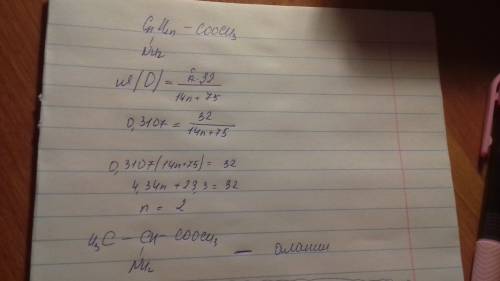 CnH2n – COOCH3
NH2
ω(O) = 32 / 14n + 75
0,3107 = 32 / 14n + 75
0,3107(14n+75) = 32
4,34n + 23,3 = 32
n = 2
H3C – CH – COOCH3 – аланин
NH2